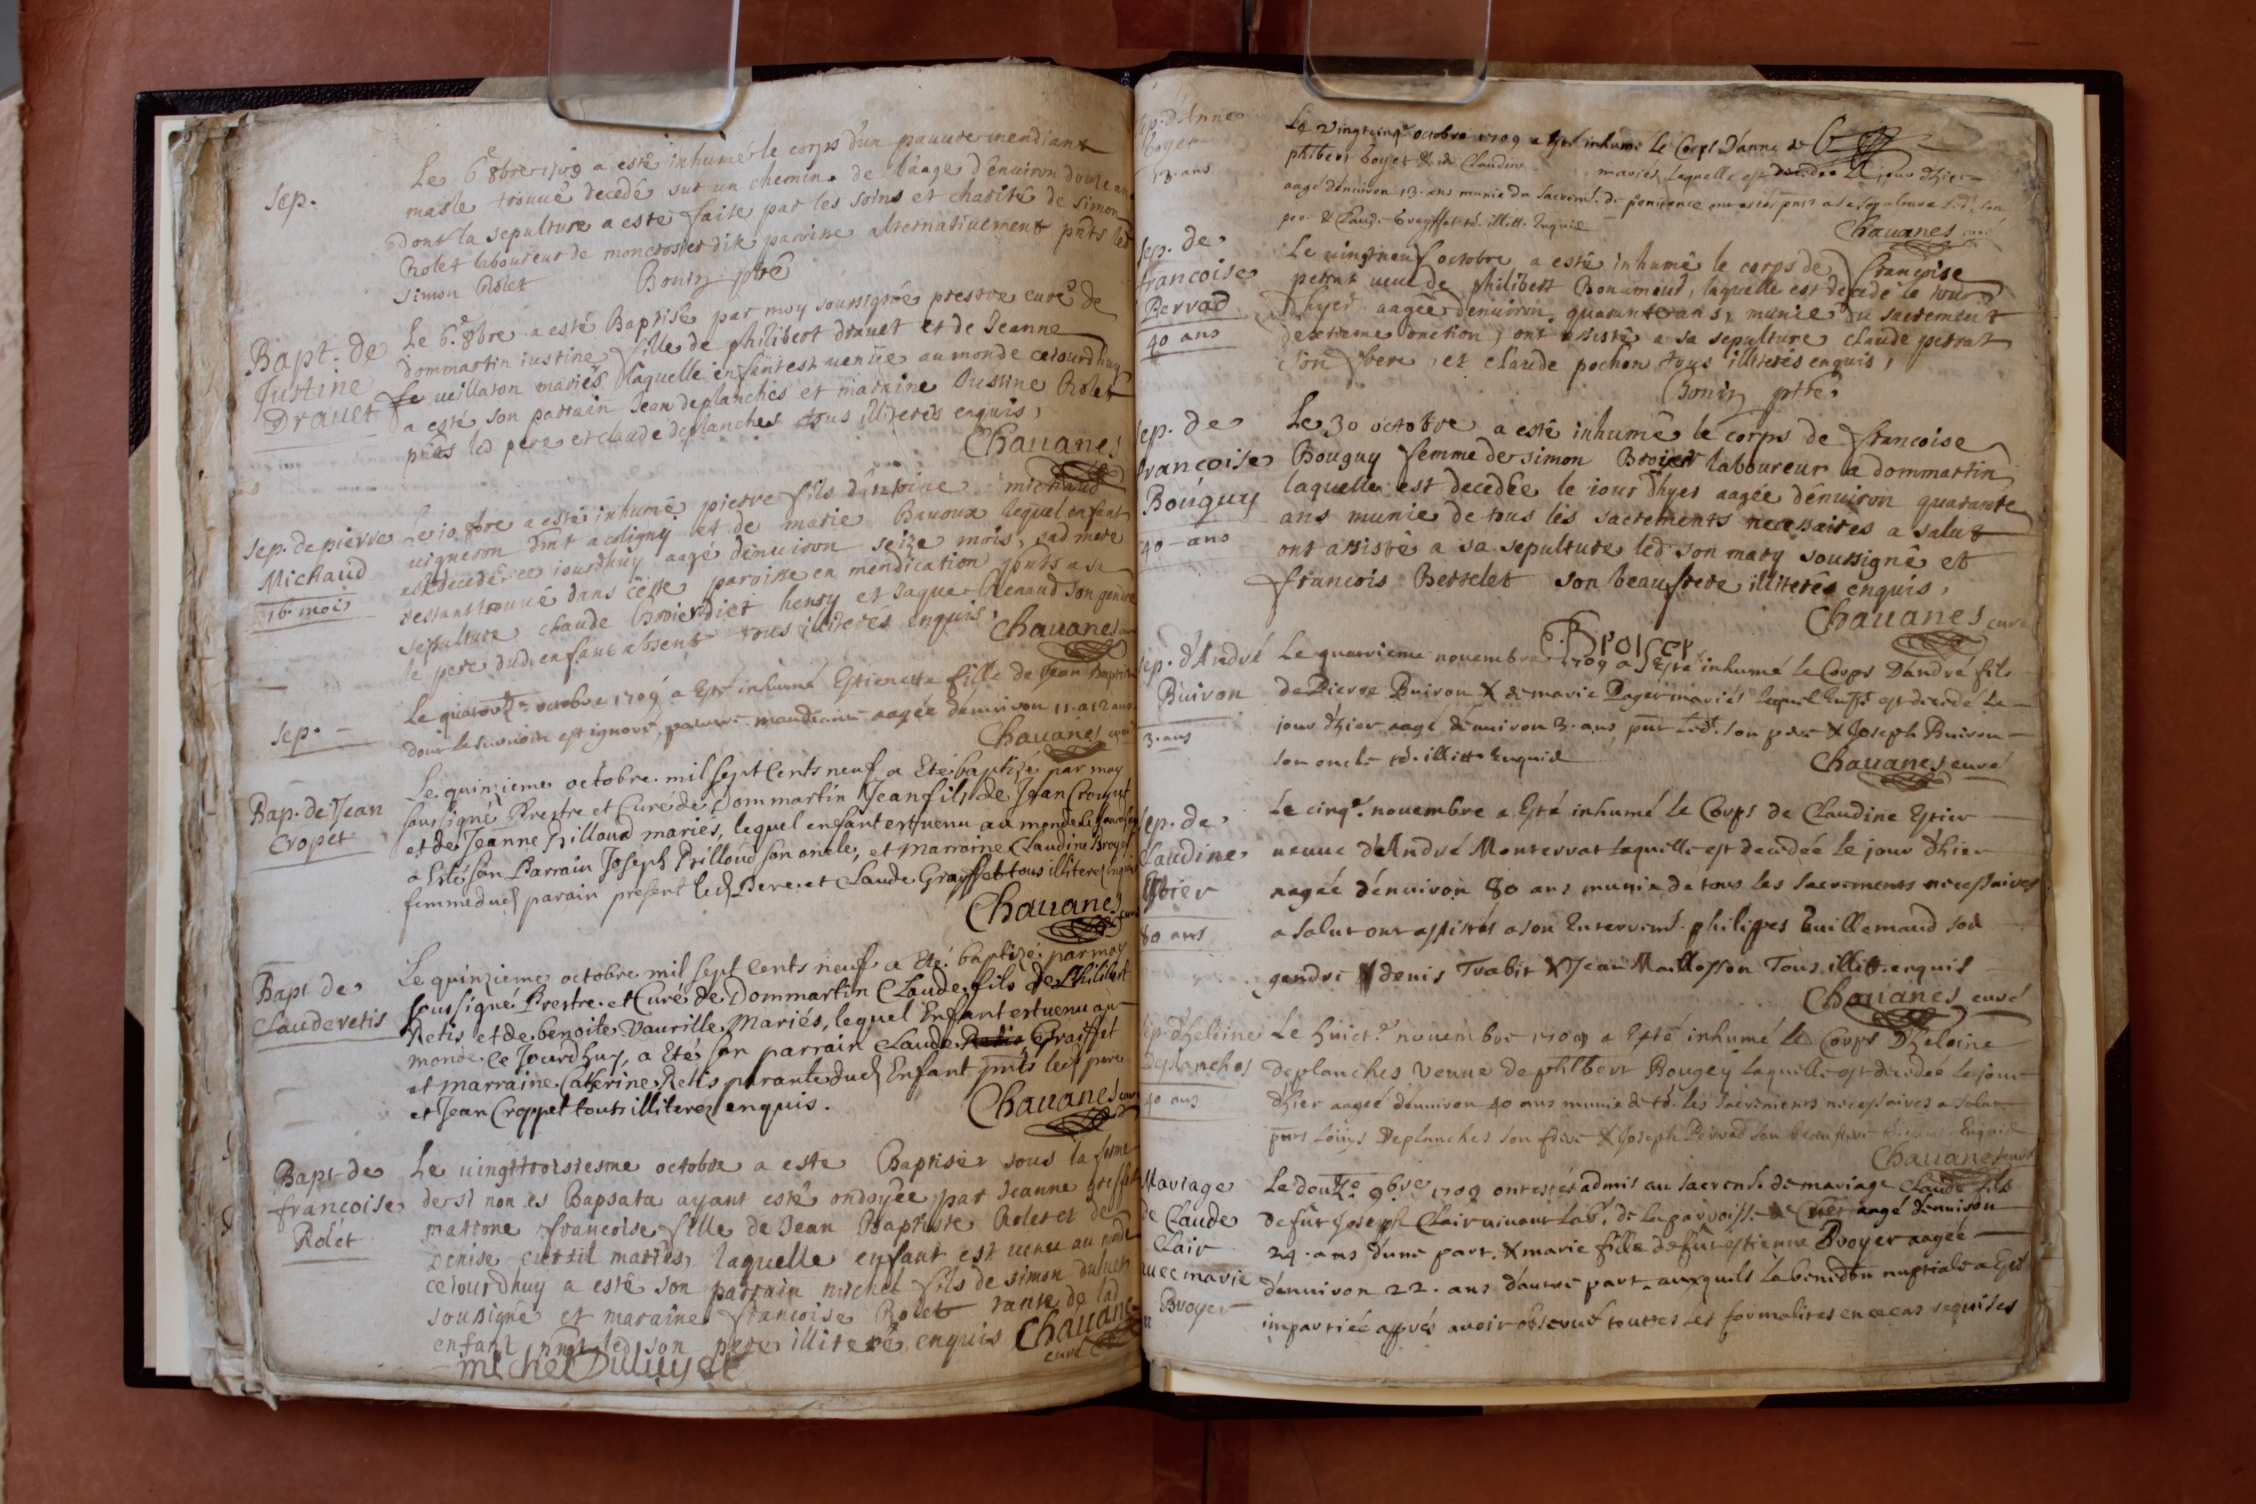 Sep.
Le 6e 8bre 1709 a esté inhumé le corps d'un pauure mendiant
masle trouué decedé sur un chemin de l'aage d'enuiron douze ans
dont la sepulture a esté faite par les soins et charité de Simon
Rolet laboureur de moncrosier dik paroisse alternatiuement pnts led
Simon Rolet Bonin ptre
Bapt. de
Justine
Drauet
Le 6e 8bre a esté Baptisée par moy soussignée prestre curé de
dommartin iustine fille de philibert drauet et de Jeanne
ueillaton mariés laquelle enfant est uenüe au monde ceiourdhuy
a esté son parrain Jean deplanches et maraine Justine Rolet
pnts led pere et claude deplanches tous illiterés enquis,
Chauanes
Sep. de pierre
Michaud
16 mois
Le 10 8bre a esté inhumé pierre fils d'antoine michaud
uigneron dmt a coligny et de marie Bauoux lequel enfant
est decedé ce iourdhuy aagé d'enuiron seize mois, sad mere
sestant trouué dans cette paroisse en mendication pnts a sa
sepulture claude Broier dict henry et Jaque Renaud son gendre
le pere dud enfant absent tous illiterés enquis,
Chauanes
Sep. -
Le quatorze octobre 1709 a Esté inhumé Estienette fille de Jean Baptiste
dont le surnom est ignoré, pauure mandiante aagée d'enuiron 11 a 12 ans
Chauanes curé
Bap. de Jean
Cropet
Le quinzieme octobre mil sept Cents neuf a Eté baptizé par moy
soussigné Prestre et Curé de Dommartin Jean fils de Jean Cropet
et de Jeanne Prilloud mariés, lequel enfant est uenu au monde
a Eté son Parrain Joseph Prilloud son oncle, et Marraine Claudine Broyer
femme dud parain present led Pere et Claude Grayffet tous illiterez Enquis
Chauanes curé
Bapt de
Claude retis
Le quinzieme octobre mil sept Cents neuf a Eté baptizé par moy
soussigné Prestre et Curé de Dommartin Claude fils de Philibert
Retis et de benoite Vaurille Mariés, lequel Enfant est uenu au
monde Ce Jourdhuy, a Eté son parrain Claude Graiffet
et marraine Catherine Retis parante dud Enfant pnts led pere
et Jean Croppet tous illiterez enquis.
Chauanes curé
Bapt de
francoise
Rolet
Le uingttroisiesme octobre a este Baptisée sous la forme
de si non es Bapsata ayant esté ondoyée par Jeanne
matrone francoise fille de Jean Baptiste Rolet et de
Denise cursil mariés, laquelle enfant est uenu au monde
ceiourdhuy a esté son parrain michel fils de simon duluyset
sousigné et maraine francoise Rolet tante de lad
enfant pnt led son pere illiteré enquis Chauanes
curé
michel Duluyset
Sep. d'Anne
boyer
13. ans
Le Vingtcinqe octobre 1709 a Esté inhumé le Corps D'anne de
philbert boyer & de Claudine mariés, laquelle est decedée le jour d'hier
aagé d'enuiron 13. ans munie du sacremt de penitence
pere & Claude Grayffet illitt. Enquis
Chauanes curé
Sep. de
francoise
Perrad
40 ans
Le uingtneuf octobre a esté inhumé le corps de francoise
perrat ueuue de philibert Bonamour, laquelle est decedé le iour
d'hyer aagée d'enuiron quarante ans, munie du sacrement
de extreme onction, ont assisté a sa sepulture claude perrat
son frere et claude pochon tous illiterés enquis,
Bonin ptre
Sep. de
francoise
Bouguy
40 - ans
Le 30 octobre a esté inhumé le corps de francoise
Bouguy femme de simon Broier laboureur a dommartin
laquelle est decedée le iour d'hyer aagée d'enuiron quarante
ans munie de tous les sacrements necessaires a salut
ont assisté a sa sepulture led son mary soussigné et
francois Berrelet son beaufrere illiterés enquis,
Chauanes curé
S. Broier
Sep. d'André
Buiron
3. ans
Le quatrieme nouembre 1709 a Esté inhumé le Corps D'andré fils
de Pierre Buiron & de marie Pager mariés lequel Enft est decedé le
jour d'hier aagé d'enuiron 3. ans, pnt led. son pere & Joseph Buiron
son oncle td. illitt. Enquis
Chauanes curé
Sep. de
Claudine
Estier
80 ans
Le cinqe. nouembre a Esté inhumé le Corps de Claudine Estier
ueuue d'André Monterrat laquelle est decedée le jour d'hier
aagée d'enuiron 80 ans munie de tous les sacrements necessaires
a salut ont assistés a son Enterremt. philippes Guillemaud son
gendre & denis Trabit & Jean Maillosson Tous illitt. enquis
Chauanes curé
Sep. d'heleine
Deplanches
40 ans
Le huicte. nouembre 1709 a Esté inhumé le Corps D'heleine
deplanches Veuue de philbert Bougey laquelle est decedée le jour
d'hier aagée d'enuiron 40 ans munie de td. les sacrements necessaires a salut
pnts Loüis Deplanches son frere & Joseph Perrad son beaufrere Enquis
Chauanes curé
Mariage
de Claude
Clair
auec marie
Broyer
Le douze. 9bre 1709 ont estés admis au sacremt. de mariage Claude fils
de fût Joseph Clair uiuant labr. de la parroisse de aagé d'enuiron
24. ans d'une part, & marie fille de fût estienne Broyer aagée
d'enuiron 22. ans d'autre part. auxquels la benedon nuptiale a Esté
impartiée apprés auoir obserué touttes les formalites en ce cas requises